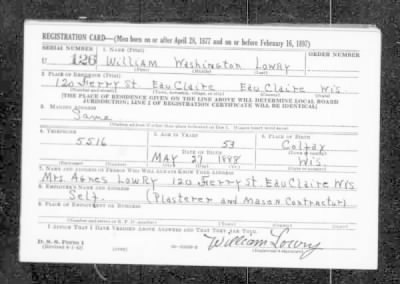 REGISTRATION CARD—(Men born on or after April 28, 1877 and on or before February 16, 1897)
SERIAL NUMBER 1. NAME (Print) ORDER NUMBER
U 126 William Washington Lowry
(First) (Middle) (Last)
2. PLACE OF RESIDENCE (Print)
120 Ferry St. Eau Claire Eau Claire Wis.
(Number and street) (Town, township, village, or city) (County) (State)
[THE PLACE OF RESIDENCE GIVEN ON THE LINE ABOVE WILL DETERMINE LOCAL BOARD
JURISDICTION; LINE 2 OF REGISTRATION CERTIFICATE WILL BE IDENTICAL]
3. MAILING ADDRESS
Same
[Mailing address if other than place indicated on line 2. If same insert word same]
4. TELEPHONE 5. AGE IN YEARS 6. PLACE OF BIRTH
5516 53 Colfax
DATE OF BIRTH (Town or county)
May 27 1888 Wis.
(Exchange) (Number) (Mo.) (Day) (Yr.) (State or country)
7. NAME AND ADDRESS OF PERSON WHO WILL ALWAYS KNOW YOUR ADDRESS
Mrs. Agnes Lowry 120 Ferry St. Eau Claire Wis
8. EMPLOYER'S NAME AND ADDRESS
Self. (Plasterer and Mason Contractor)
9. PLACE OF EMPLOYMENT OR BUSINESS
(Number and street or R. F. D. number) (Town) (County) (State)
I AFFIRM THAT I HAVE VERIFIED ABOVE ANSWERS AND THAT THEY ARE TRUE.
D. S. S. Form 1
(Revised 4-1-42) (over) William Lowry
(Registrant's signature)